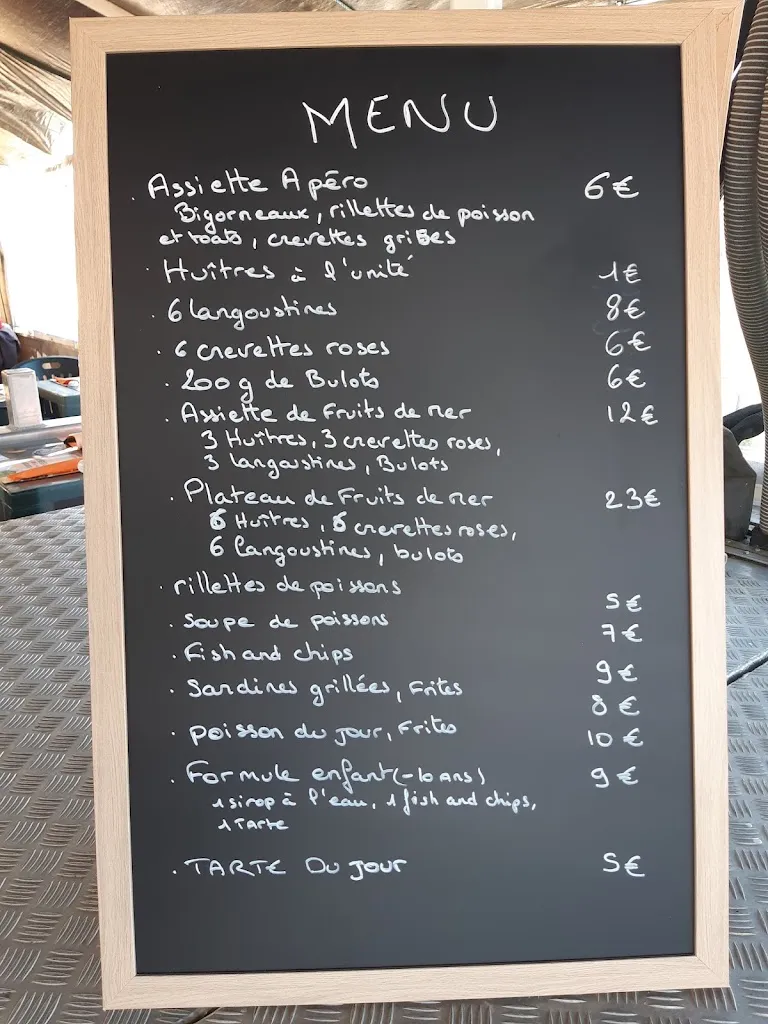 MENU
. Assiette Apéro 6€
Bigorneaux, rillettes de poisson
et toats, crevettes grises
. Huîtres à l'unité 1€
. 6 langoustines 8€
. 6 crevettes roses 6€
. 200 g de Bulots 6€
. Assiette de Fruits de mer 12€
3 Huîtres, 3 crevettes roses,
3 langoustines, Bulots
. Plateau de Fruits de mer 23€
6 Huîtres, 6 crevettes roses,
6 langoustines, bulots
. rillettes de poissons 5€
. Soupe de poissons 7€
. Fish and chips 9€
. Sardines grillées, Frites 8€
. poisson du jour, Frites 10€
. Formule enfant (-10 ans) 9€
1 sirop à l'eau, 1 fish and chips,
1 Tarte
. TARTE DU JOUR 5€